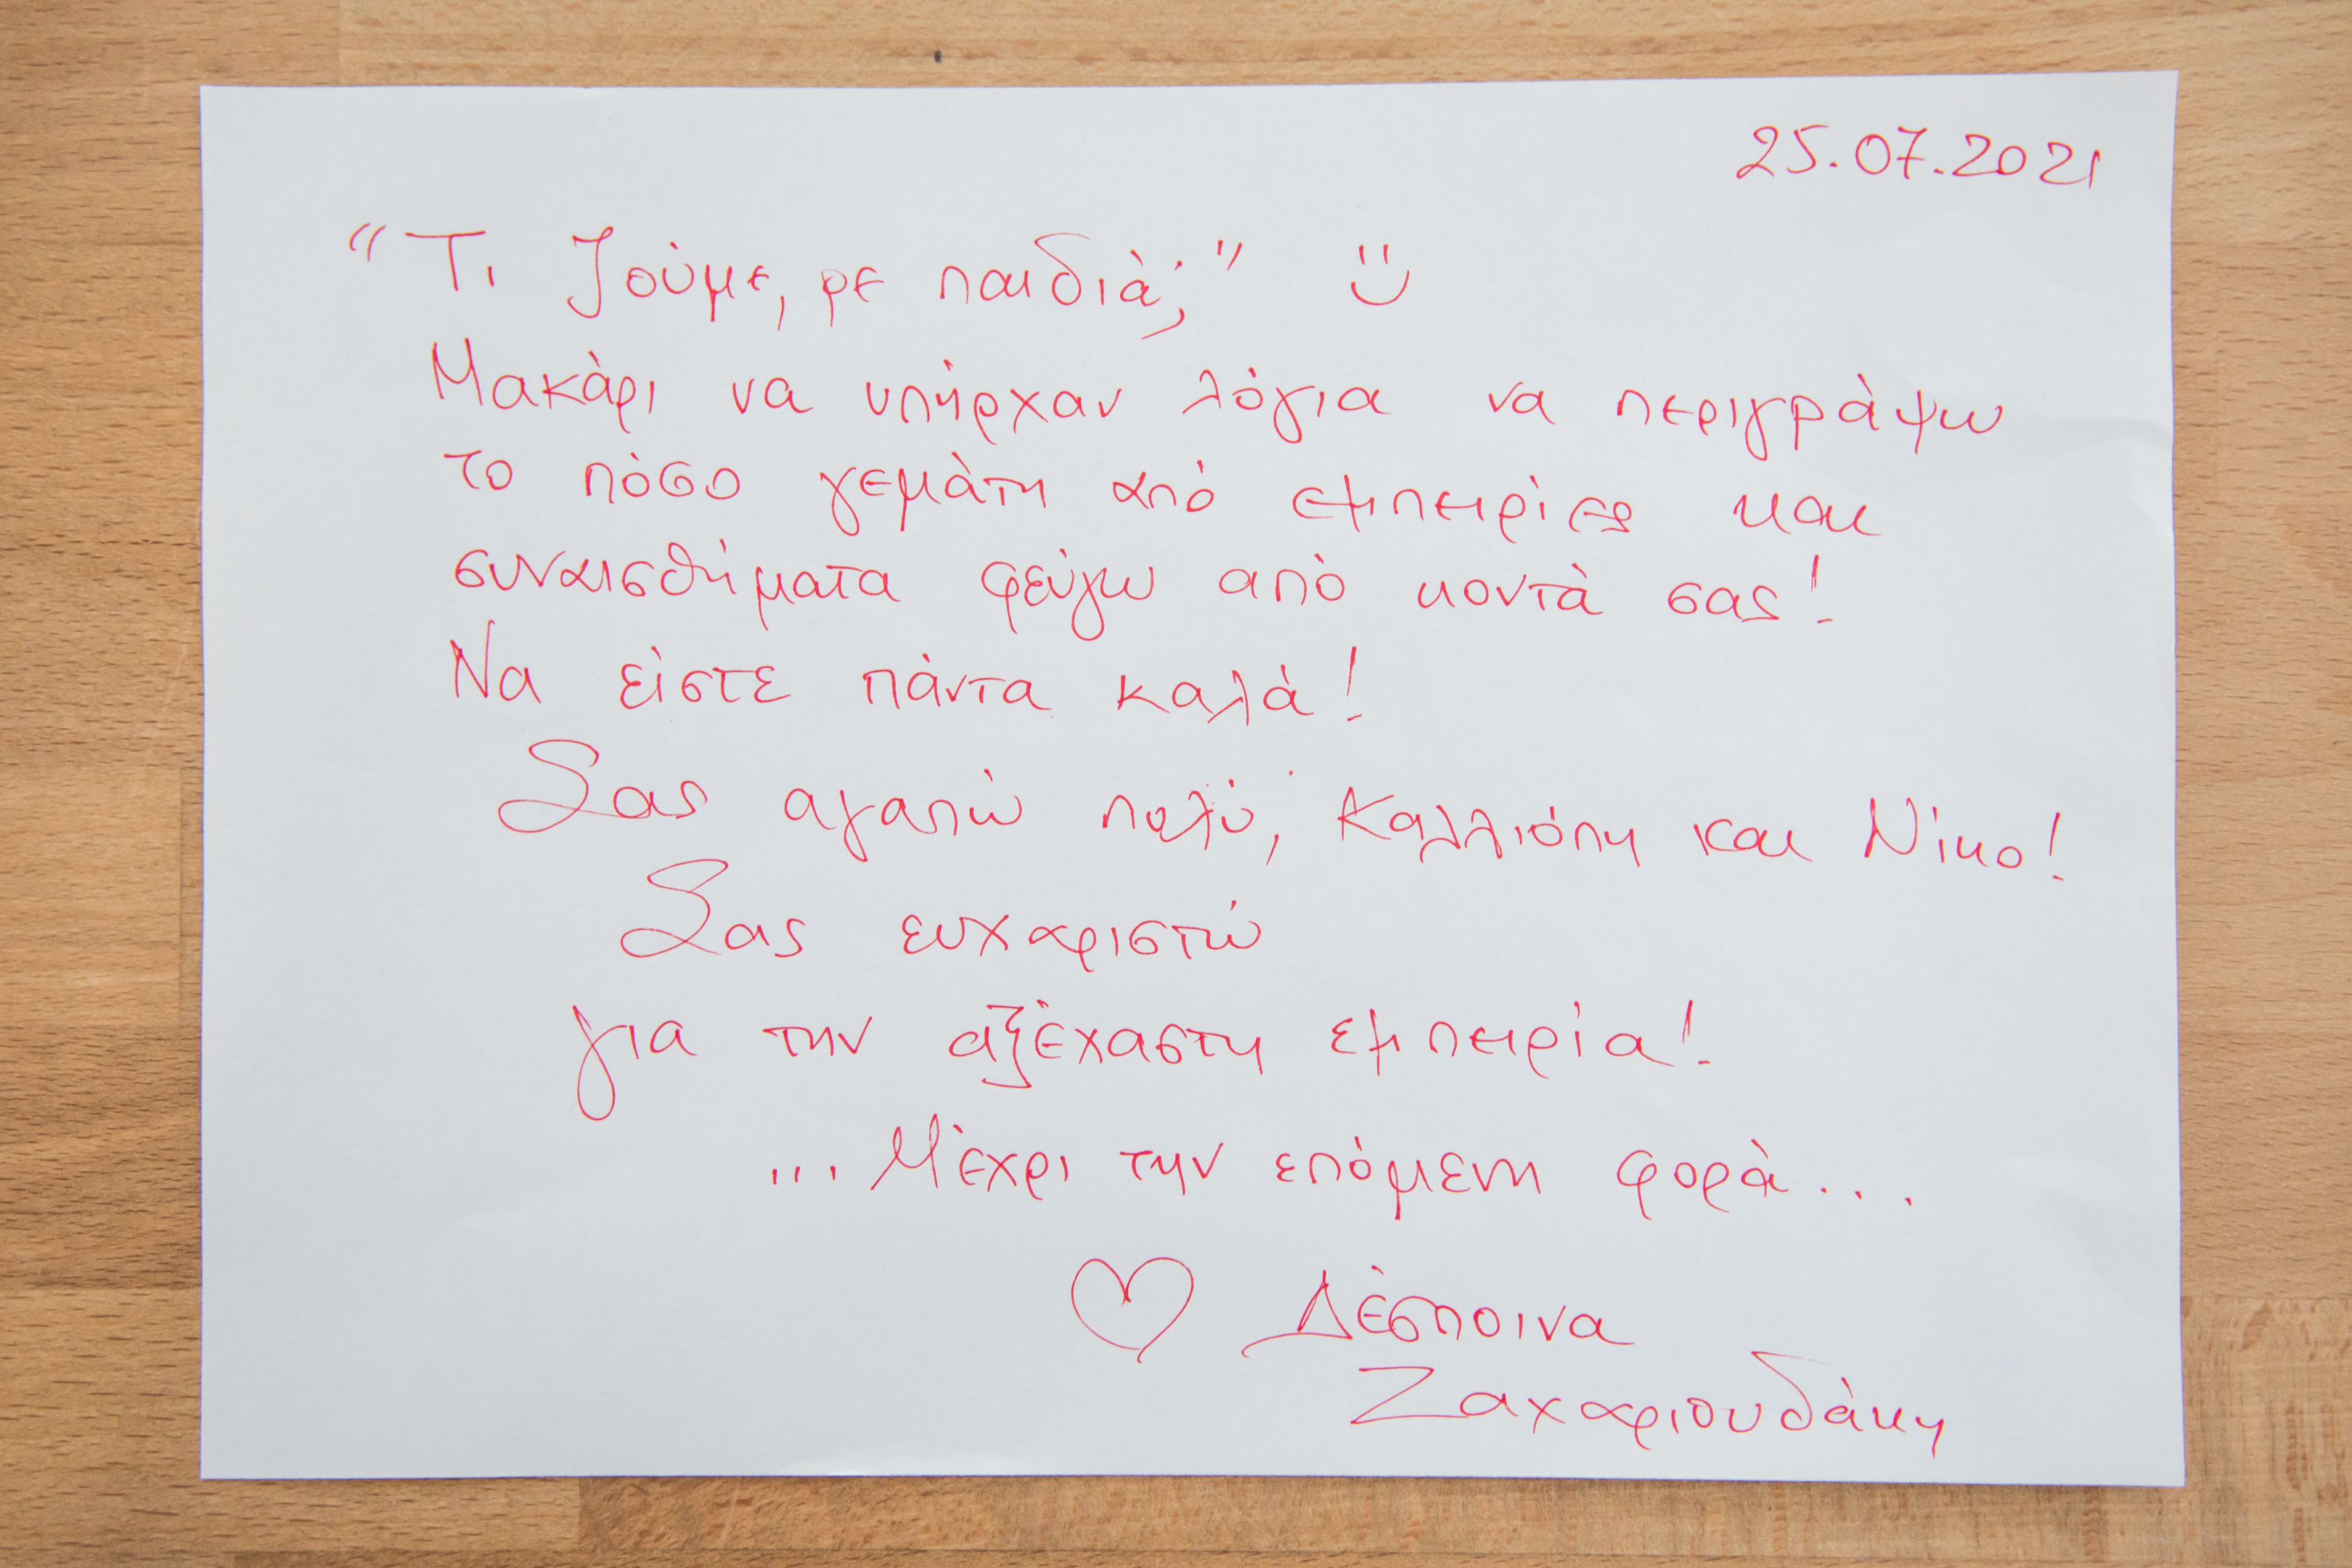 25.07.2021
“Τι ζούμε, ρε παιδιά;”
Μακάρι να υπήρχαν λόγια να περιγράψω
το πόσο γεμάτη από εμπειρίες και
συναισθήματα φεύγω από κοντά σας!
Να είστε πάντα καλά!
Σας αγαπώ πολύ, Καλλιόπη και Νίκο!
Σας ευχαριστώ
για την αξέχαστη εμπειρία!
... Μέχρι την επόμενη φορά...
Δέσποινα
Ζαχαριουδάκη